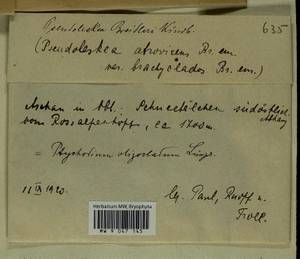 635
Pseudoleskea Breidleri Kindb.
(Pseudoleskea atrovirens Br. eur.
var. brachyclados Br. eur.)
Aschau in Obb.: südöstlich
vom Rossalpenkopf, ca 1700m.
= Ptychodium oligocladum Limpr.
11 IX 1920.
lg. Paul, Ruoff u.
Troll.
Herbarium MW, Bryophyta
MW 9 047 143